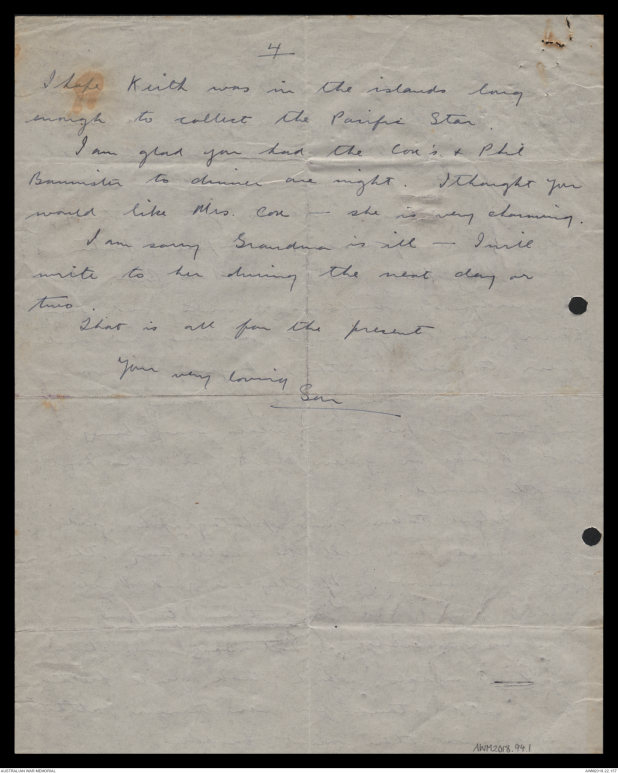 4
I hope Keith was in the islands long
enough to collect the Pacific Star.
I am glad you had the Cox's & Phil
Bannister to dinner one night. I thought you
would like Mrs. Cox — she is very charming.
I am sorry Grandma is ill — I will
write to her during the next day or
two.
That is all for the present
Your very loving
Son
AWM2018.94.1
AUSTRALIAN WAR MEMORIAL